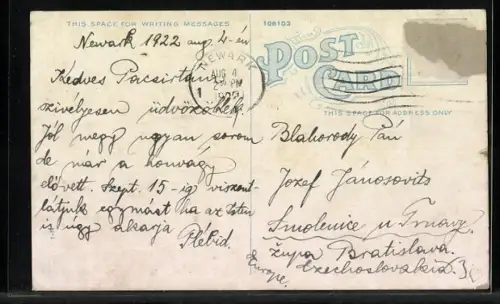 THIS SPACE FOR WRITING MESSAGES
106103
Newark 1922 aug. 4-én
Kedves
szivélyesen üdvözöllek.
Jól megy ugyan sorom
de már a honvágy
elővett. Szept. 15-ig viszont-
látjuk egymást ha az Isten
is ugy akarja
NEWARK
AUG 4
PM
1922
1
POST
CARD
THIS SPACE FOR ADDRESS ONLY
Blahorody Pán
Jozef Jánosovits
Smolenice u Trnavz.
župa Bratislava.
Czechoslovakia
Europe.